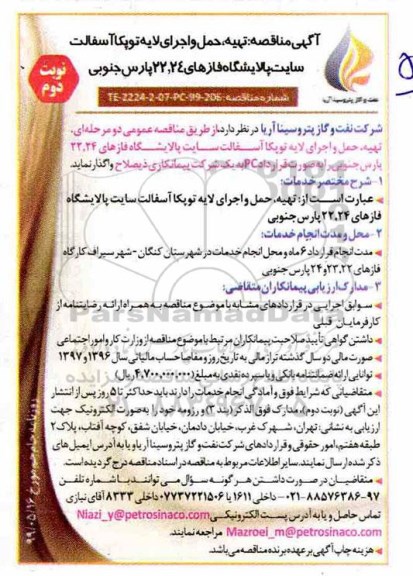 آگهی مناقصه: تهیه، حمل و اجرای لایه توپکا آسفالت
سایت پالایشگاه فازهای ۲۲,۲٤ پارس جنوبی
نوبت
دوم
شماره مناقصه: TE-2224-2-07-PC-99-206
نفت و گاز پتروسینا آریا
شرکت نفت و گاز پتروسینا آریا در نظر دارد، از طریق مناقصه عمومی دو مرحله‌ای،
تهیه، حمل و اجرای لایه توپکا آسفالت سایت پالایشگاه فازهای ۲۲,۲۴
پارس جنوبی را به صورت قرارداد PC به یک شرکت پیمانکاری ذیصلاح واگذار نماید.
۱- شرح مختصر خدمات:
عبارت است از: تهیه، حمل و اجرای لایه توپکا آسفالت سایت پالایشگاه
فازهای ۲۲,۲۴ پارس جنوبی
۲- محل و مدت انجام خدمات:
مدت انجام قرارداد ۶ ماه و محل انجام خدمات در شهرستان کنگان - شهر سیراف کارگاه
فازهای ۲۲,۲۳ و ۲۴ پارس جنوبی
۳- مدارک ارزیابی پیمانکاران متقاضی:
سوابق اجرایی در قراردادهای مشابه با موضوع مناقصه به همراه ارائه رضایتنامه از
کارفرمایان قبلی
داشتن گواهی تأیید صلاحیت پیمانکاران مرتبط با موضوع مناقصه از وزارت کار و امور اجتماعی
صورت مالی دو سال گذشته تراز مالی به تاریخ روز و مفاصاحساب مالیاتی سال ۱۳۹۶ و ۱۳۹۷
توانایی ارائه ضمانتنامه بانکی و یا سپرده نقدی به مبلغ (۴,۷۰۰,۰۰۰,۰۰۰) ریال
متقاضیانی که شرایط فوق و آمادگی انجام خدمات را دارند باید حداکثر تا ۵ روز پس از انتشار
این آگهی (نوبت دوم)، مدارک فوق الذکر (بند ۳) و رزومه خود را به صورت الکترونیک جهت
ارزیابی به نشانی: تهران، شهرک غرب، خیابان دادمان، خیابان شفق، کوچه آفتاب، پلاک ۲
طبقه هفتم، امور حقوقی و قراردادهای شرکت نفت و گاز پتروسینا آریا و یا به آدرس ایمیل‌های
ذکر شده ارسال نمایند. سایر اطلاعات مربوط به مناقصه در اسناد مناقصه درج گردیده است.
متقاضیان در صورت داشتن هر گونه سؤال می توانند با شماره تلفن
۰۲۱-۸۸۵۷۶۳۸۶-۹۷ داخلی ۱۶۱۱ یا ۰۷۷۳۷۲۲۱۵۰۶ داخلی ۸۳۳۳ آقای نیازی
تماس حاصل و یا به آدرس پست الکترونیکی Niazi_y@petrosinaco.com
Mazroei_m@petrosinaco.com مراجعه نمایند.
هزینه چاپ آگهی بر عهده برنده مناقصه می‌باشد.
روزنامه جام جم مورخ ۹۹/۰۵/۱۶
ParsNamadData